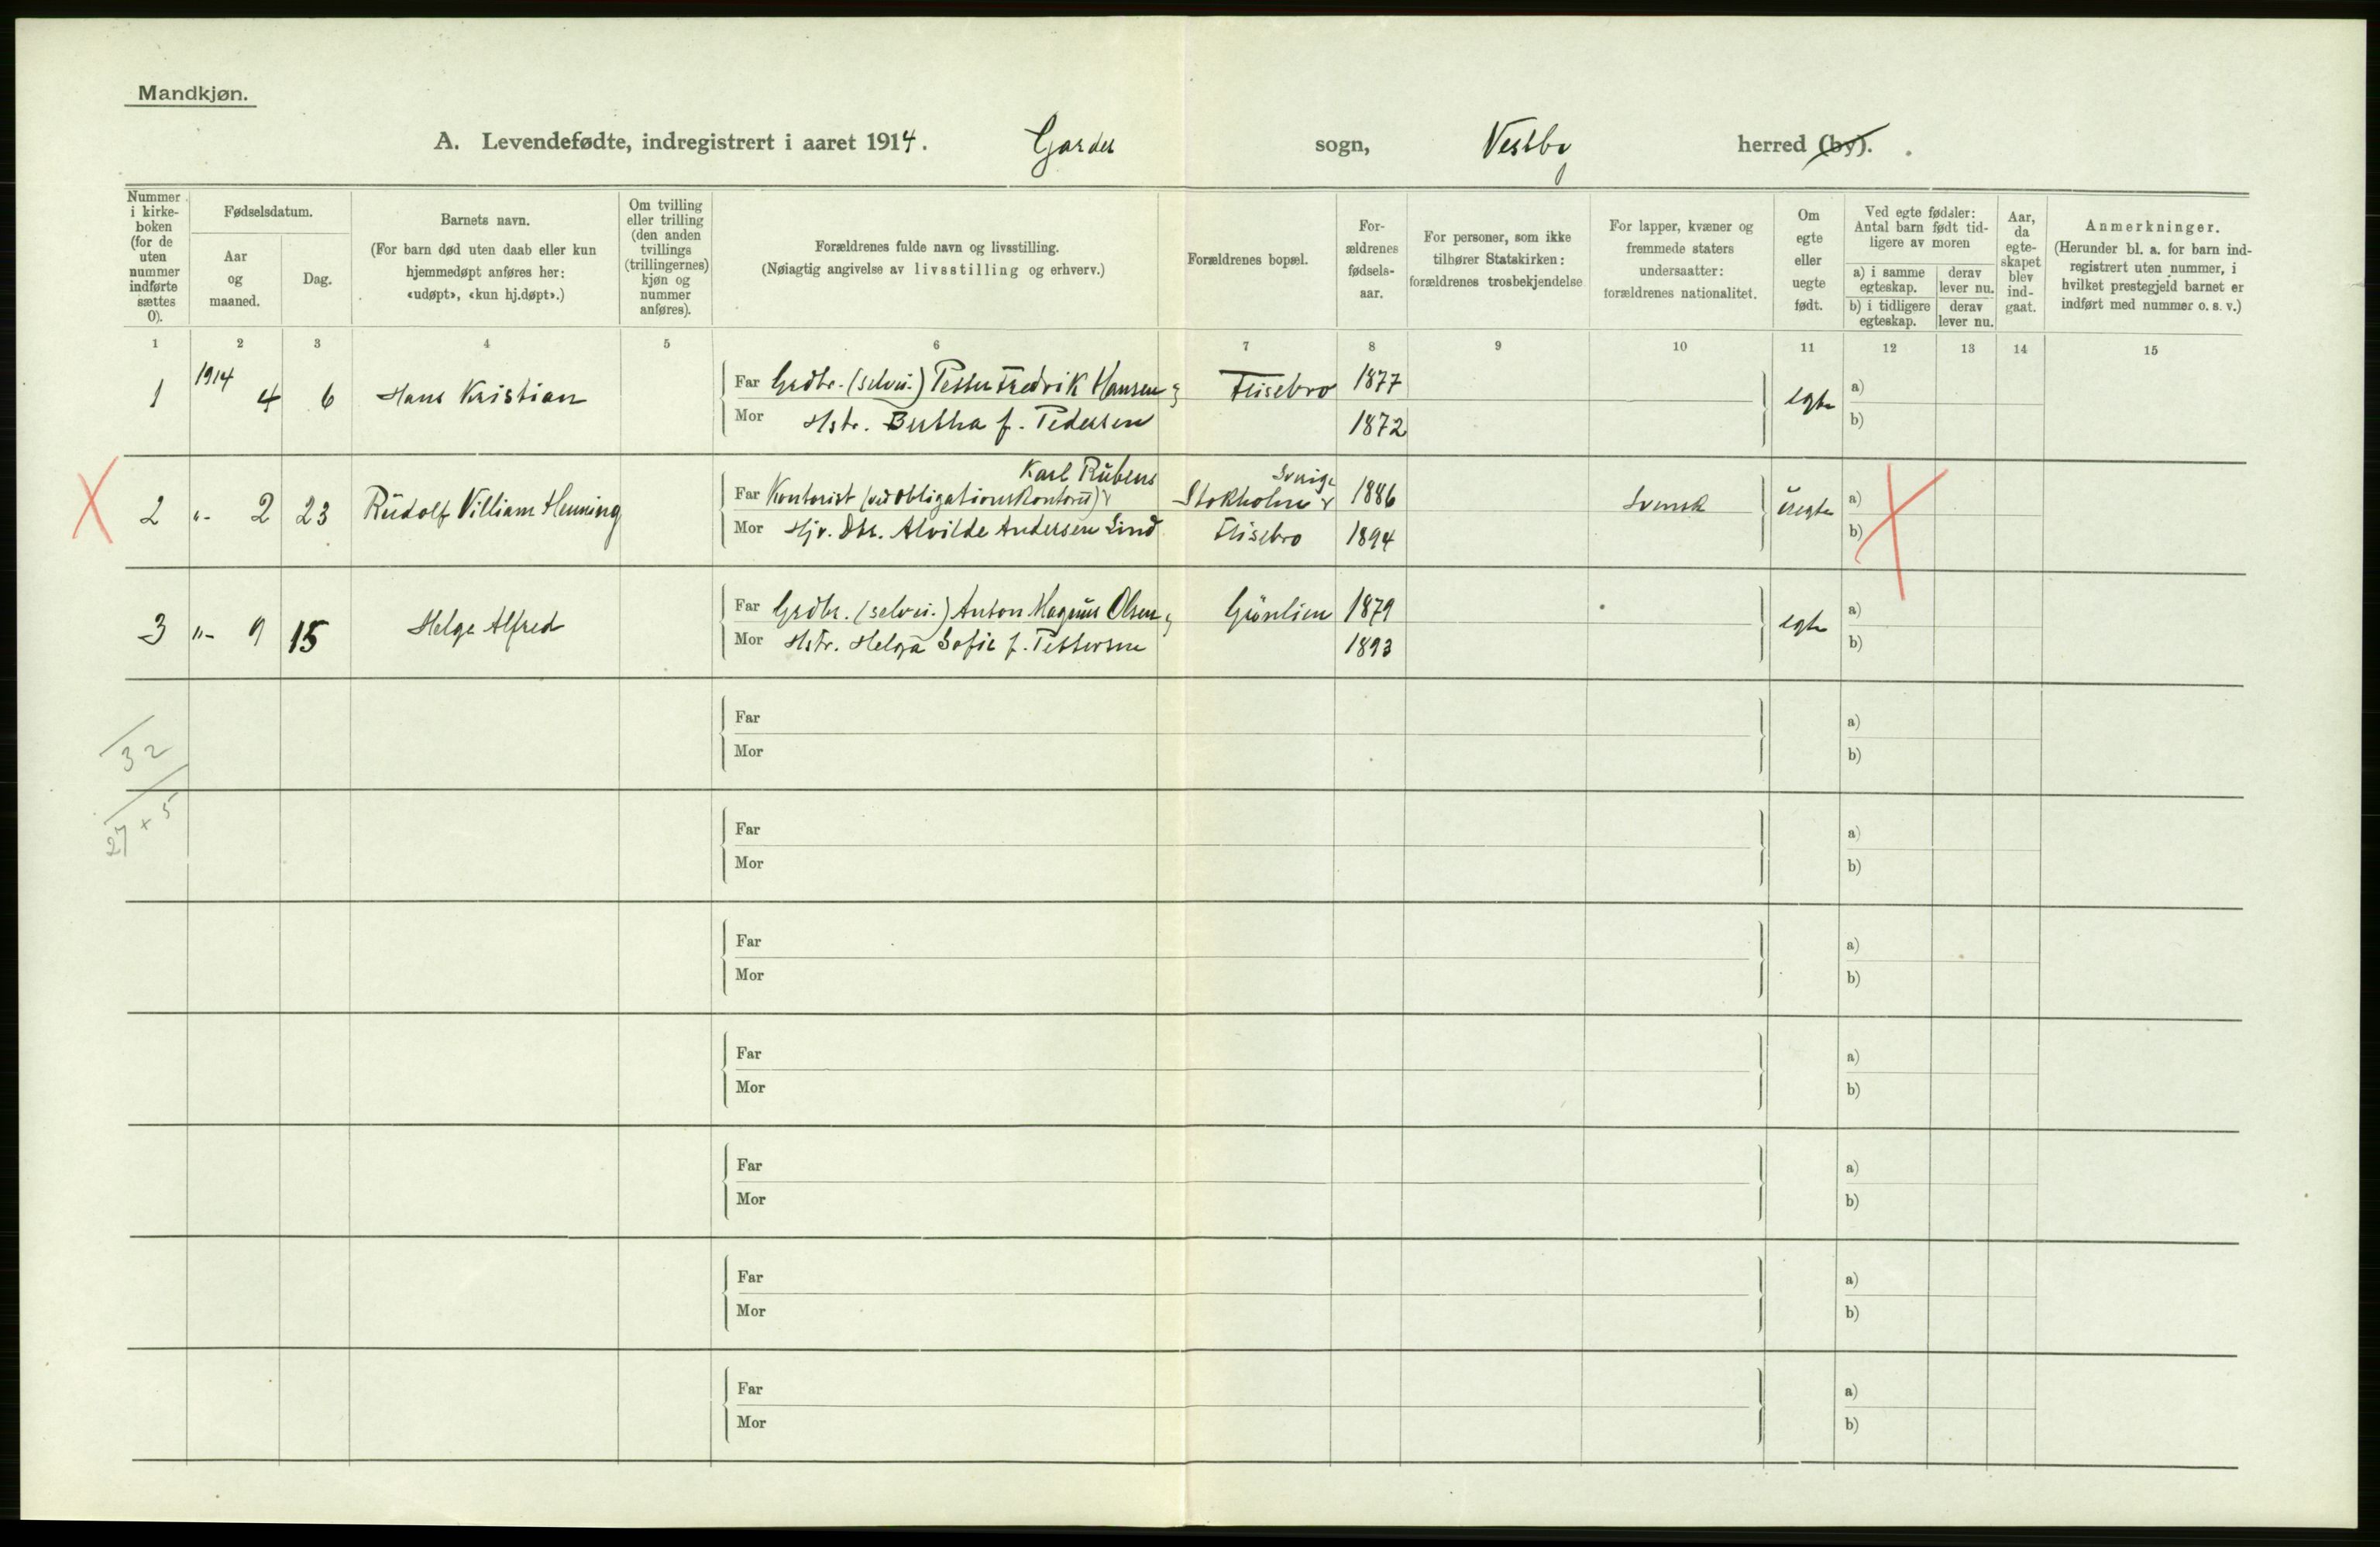 Mandkjøn.
A. Levendefødte, indregistrert i aaret 1914. Garder sogn, Vestby herred (by).
Nummer i kirke- boken (for de uten nummer indførte sættes 0).
Fødselsdatum.
Aar og maaned.
Dag.
Barnets navn.
(For barn død uten daab eller kun hjemmedøpt anføres her: «udøpt», «kun hj.døpt».)
Om tvilling eller trilling (den anden tvillings (trillingernes) kjøn og nummer anføres).
Forældrenes fulde navn og livsstilling.
(Nøiagtig angivelse av livsstilling og erhverv.)
Forældrenes bopæl.
For- ældrenes fødsels- aar.
For personer, som ikke tilhører Statskirken: forældrenes trosbekjendelse
For lapper, kvæner og fremmede staters undersaatter: forældrenes nationalitet.
Om egte eller uegte født.
Ved egte fødsler: Antal barn født tid- ligere av moren
a) i samme egteskap.
derav lever nu.
b) i tidligere egteskap.
derav lever nu.
Aar, da egte- skapet blev ind- gaat.
Anmerkninger.
(Herunder bl. a. for barn ind- registrert uten nummer, i hvilket prestegjeld barnet er indført med nummer o. s. v.)
1 2 3 4 5 6 7 8 9 10 11 12 13 14 15
1 1914 4 6 Hans Kristian Far Grdbr. (selvei.) Petter Fredrik Hansen & Flisebro 1877 egte a)
Mor Hstr. Bertha f. Pedersen 1872 b)
Karl Rubens Sverige
2 "- 2 23 Rudolf Villiam Henning Far Kontorist (ved obligationskontoret) & Stokholm & 1886 Svensk uegte a)
Mor Hjv. Dtr. Alvilde Andersen Lind Flisebro 1894 b)
3 "- 9 15 Helge Alfred Far Grdbr. (selvei.) Anton Magnus Olsen & Grønlien 1879 egte a)
Mor Hstr. Helga Sofie f. Pettersen 1893 b)
Far a)
Mor b)
32
Far a)
27 + 5
Mor b)
Far a)
Mor b)
Far a)
Mor b)
Far a)
Mor b)
Far a)
Mor b)
Far a)
Mor b)